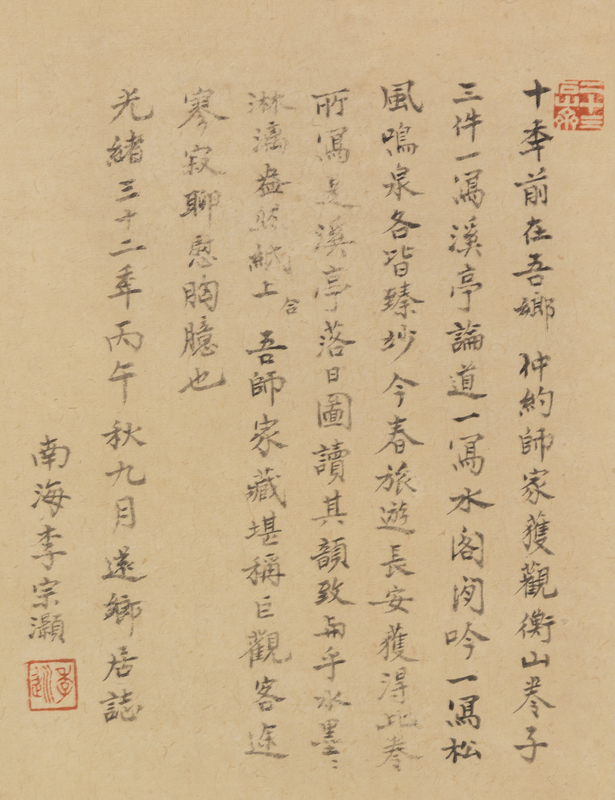 十年前在吾鄉 仲約師家獲觀衡山卷子
三件一寫溪亭論道一寫水閣閒吟一寫松
風鳴泉各皆臻妙今春旅遊長安獲得此卷
所寫是溪亭落日圖讀其韻致而乎水墨
淋漓盎然紙上合 吾師家藏堪稱巨觀客途
寥寂聊慰胸臆也
光緒三十二年丙午秋九月還鄉居誌
南海李宗灝